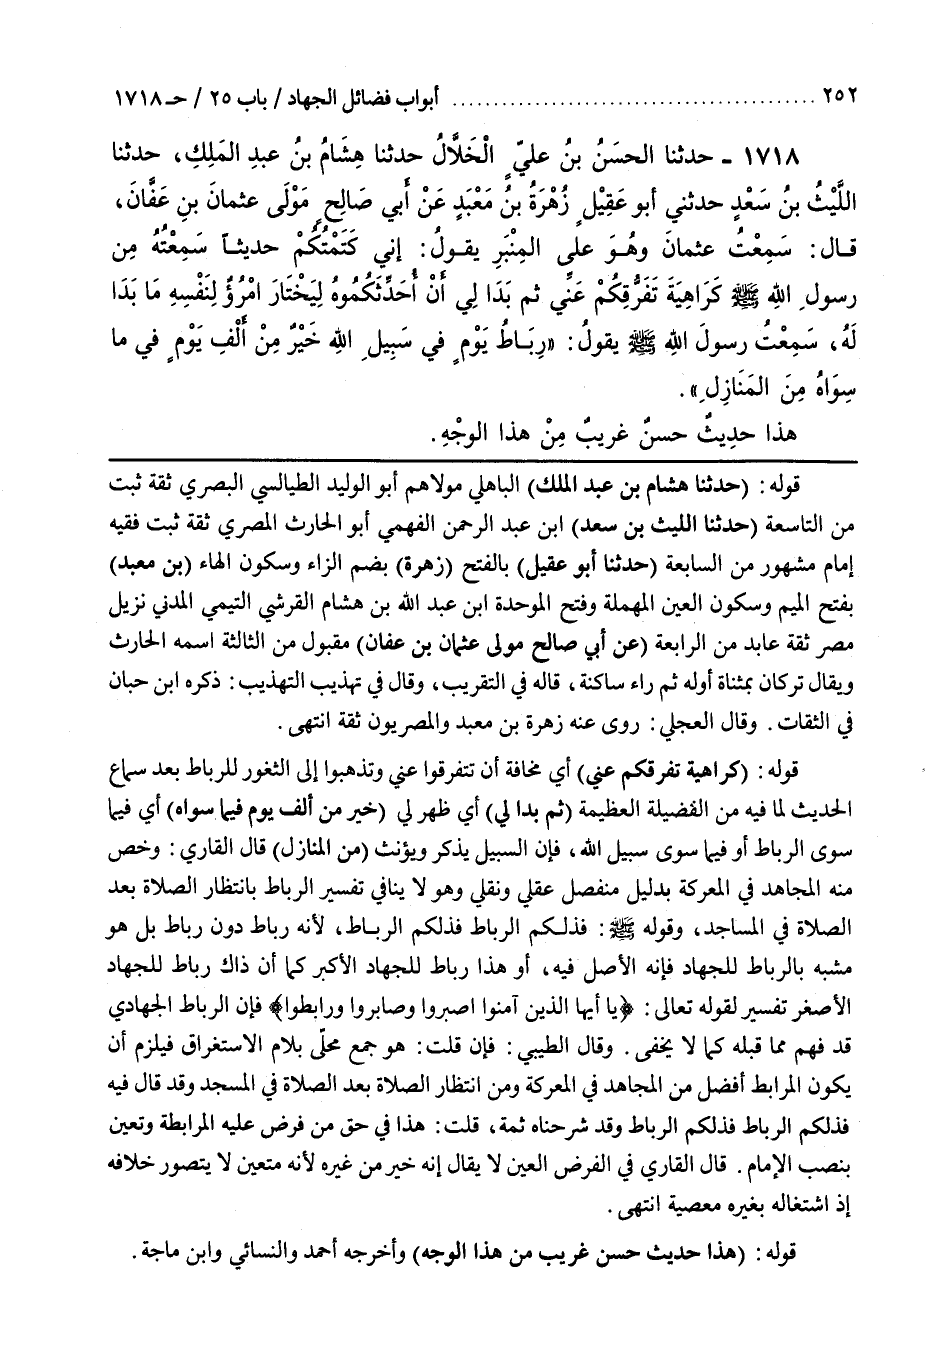 ٢٥٢ ............................................ أبواب فضائل الجهاد / باب ٢٥ / حـ ١٧١٨
١٧١٨ - حدثنا الحسَنُ بنُ عليٍّ الْخَلَّالُ حدثنا هِشَامُ بنُ عبدِ المَلِكِ، حدثنا
اللَّيْثُ بنُ سَعْدٍ حدثني أبو عَقِيْلٍ زُهْرَةُ بنُ مَعْبَدٍ عَنْ أَبي صَالِحٍ مَوْلَى عثمانَ بنِ عَفَّانَ،
قـال: سَمِعْتُ عثمانَ وهُـوَ على المِنْبَرِ يقـولُ: إني كَتَمْتُكُمْ حديثاً سَمِعْتُهُ مِن
رسولِ اللهِ ﷺ كَرَاهِيَةَ تَفَرُّقِكُمْ عَنِّي ثم بَدَا لِي أَنْ أُحَدِّثَكُمُوهُ لِيَخْتَارَ امْرُؤٌ لِنَفْسِهِ مَا بَدَا
لَهُ، سَمِعْتُ رسولَ اللهِ ﷺ يقولُ: «رِبَـاطُ يَوْمٍ في سَبِيلِ اللهِ خَيْرٌ مِنْ أَلْفِ يَوْمٍ في ما
سِوَاهُ مِنَ المَنَازِلِ».
هذا حدِيثٌ حسنٌ غريبٌ مِنْ هذا الوجْهِ.
قوله: (حدثنا هشام بن عبد الملك) الباهلي مولاهم أبو الوليد الطيالسي البصري ثقة ثبت
من التاسعة (حدثنا الليث بن سعد) ابن عبد الرحمن الفهمي أبو الحارث المصري ثقة ثبت فقيه
إمام مشهور من السابعة (حدثنا أبو عقيل) بالفتح (زهرة) بضم الزاء وسكون الهاء (بن معبد)
بفتح الميم وسكون العين المهملة وفتح الموحدة ابن عبد الله بن هشام القرشي التيمي المدني نزيل
مصر ثقة عابد من الرابعة (عن أبي صالح مولى عثمان بن عفان) مقبول من الثالثة اسمه الحارث
ويقال تركان بمثناة أوله ثم راء ساكنة، قاله في التقريب، وقال في تهذيب التهذيب: ذكره ابن حبان
في الثقات. وقال العجلي: روى عنه زهرة بن معبد والمصريون ثقة انتهى.
قوله: (كراهية تفرقكم عني) أي مخافة أن تتفرقوا عني وتذهبوا إلى الثغور للرباط بعد سماع
الحديث لما فيه من الفضيلة العظيمة (ثم بدا لي) أي ظهر لي (خير من ألف يوم فيما سواه) أي فيما
سوى الرباط أو فيما سوى سبيل الله، فإن السبيل يذكر ويؤنث (من المنازل) قال القاري: وخص
منه المجاهد في المعركة بدليل منفصل عقلي ونقلي وهو لا ينافي تفسير الرباط بانتظار الصلاة بعد
الصلاة في المساجد، وقوله ﷺ: فذلـكم الرباط فذلكم الربـاط، لأنه رباط دون رباط بل هو
مشبه بالرباط للجهاد فإنه الأصل فيه، أو هذا رباط للجهاد الأكبر كما أن ذاك رباط للجهاد
الأصغر تفسير لقوله تعالى: ﴿يا أيها الذين آمنوا اصبروا وصابروا ورابطوا﴾ فإن الرباط الجهادي
قد فهم مما قبله كما لا يخفى. وقال الطيبي: فإن قلت: هو جمع محلّى بلام الاستغراق فيلزم أن
يكون المرابط أفضل من المجاهد في المعركة ومن انتظار الصلاة بعد الصلاة في المسجد وقد قال فيه
فذلكم الرباط فذلكم الرباط وقد شرحناه ثمة، قلت: هذا في حق من فرض عليه المرابطة وتعين
بنصب الإمام. قال القاري في الفرض العين لا يقال إنه خير من غيره لأنه متعين لا يتصور خلافه
إذ اشتغاله بغيره معصية انتهى.
قوله: (هذا حديث حسن غريب من هذا الوجه) وأخرجه أحمد والنسائي وابن ماجة.